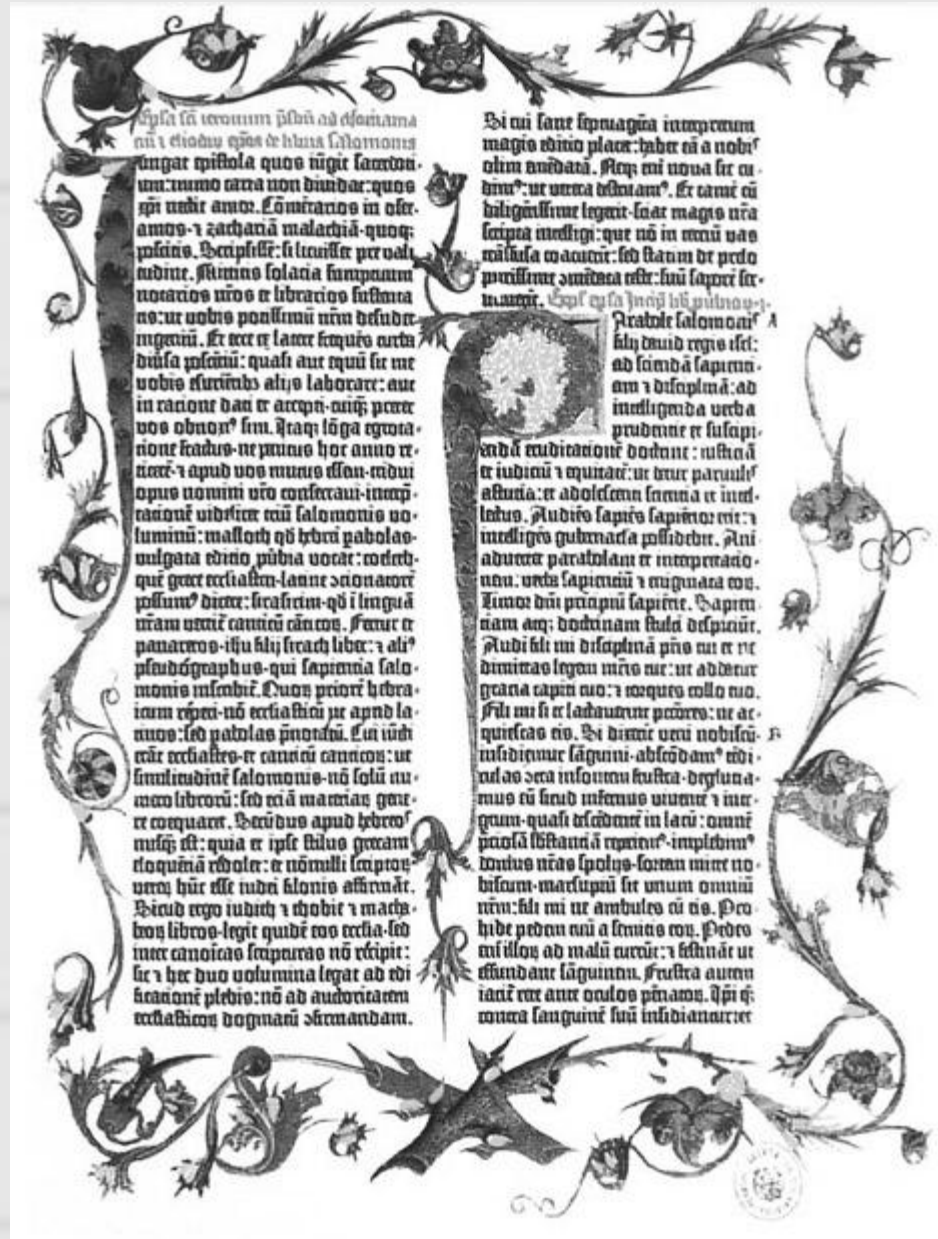 Epistola sancti iheronimi
Iungat epistola quos iūgit sacerdoti-
um: immo carta non diuidat: quos
xpi nectit amor. Cōmētarios in osee-
amos-⁊ zachariā malachiā-quoqꝫ
poscitis. Scripsissē: si licuisset pre vali-
tudine. Mittitis solacia sumptuum-
notarios nr̄os et librarios sustenta-
tis: ut vobis potissimū nr̄m desudet
ingeniū. Et ecce ex latere frequēs turba
diūsa poscētiū: quasi aut equū sit me
vobis esuriētibꝫ alijs laborare: aut
in racione dati et accepti-cuiqꝫ preter
vos obnoxꝰ sim. Itaqꝫ lōga egrota-
tione fractus-ne penitus hoc anno re-
ticerē-⁊ apud vos mutus essem-tridui
opus nomini vr̄o consecraui-interp̄-
tationē videlicet triū salomonis vo-
luminū: masloth qd̄ hebrei pabolas-
vulgata editio p̄ubia vocat: coeleth-
quē grece ecclesiasten-latine ꝯcionatorē
possumꝰ dicere: sirasirim-qd̄ ī linguā
nr̄am vertit̄ canticū cāticoꝝ. Fertur et
panaretos-ihu filij sirach liber: ⁊ aliꝰ
pseudographus-qui sapientia salo-
monis inscribit̄. Quoꝝ priorē hebra-
icum rēperi-nō ecclesiasticū ut apud la-
tinos: sed pabolas p̄notatū. Cui iūcti
erāt ecclesiastes-et canticū canticoꝝ: ut
similitudinē salomonis-nō solū nu-
mero librorū: sed eciā materiaꝝ gene-
re coequaret. Secūdus apud hebreos
nusqꝫ est: quia et ipse stilus grecam
eloquētiā redolet: et nōnulli scriptoꝝ
veteꝝ hūc esse iudei filonis affirmāt.
Sicud ergo iudith ⁊ thobie ⁊ macha-
beoꝝ libros-legit quidē eos ecclesia-sed
inter canoicas scripturas nō recipit:
sic ⁊ hec duo volumina legat ad edi-
ficationē plebis: nō ad auctoritatem
ecclesiasticoꝝ dogmatū ꝯfirmandam.
Si cui sane septuaginta interpretum
magis editio placet: habet eā a nobis
olim emēdatā. Neqꝫ eni nova sic cu-
dimꝰ: ut vetera destruamꝰ. Et tamē cū
diligētissime legerit-sciat magis nr̄a
scripta intelligi: que nō in terciū vas
trāsfusa coacuerit: sed statim de prelo
purissime ꝯmēdata teste: suū saporē ser-
uauerit.
Parabole salomonis A
filij dauid regis isrl̄:
ad sciendā sapienti-
am ⁊ disciplinā: ad
intelligenda verba
prudentie et suscipi-
endā eruditationē doctrine: iusticiā
et iudiciū ⁊ equitatē: ut detur paruulis
astucia: et adolescenti scientia et intel-
lectus. Audiēs sapiēs sapiētior erit: ⁊
intelligēs gubernacla possidebit. Ani-
aduertet parabolam et interpretatio-
nem: verba sapientiū ⁊ enigmata eoꝝ.
Timor dn̄i principiū sapiētie. Sapien-
tiam atqꝫ doctrinam stulti despiciūt.
Audi fili mi disciplinā pr̄is tui et ne
dimittas legem mr̄is tue: ut addatur
gracia capiti tuo: ⁊ torques collo tuo.
Fili mi si te lactauerint pctōres: ne ac-
quiescas eis. Si dixerit veni nobiscū- B
insidiemur sāguini-abscōdamꝰ tēdi-
culas ꝯtra insontem frustra-deglutia-
mus eū sicud infernus viuentē ⁊ inte-
grum-quasi descēdentē in lacū: omnē
p̄ciosā sb̄stanciā reperiemꝰ-implebimꝰ
domus nr̄as spolijs-sortem mitte no-
biscum-marsupiū sit unum omniū
nr̄m: fili mi ne ambules cū eis. Pro-
hibe pedem tuū a semitis eoꝝ. Pedes
eni illoꝝ ad malū currūt: ⁊ festināt ut
effundant sāguinem. Frustra autem
iacit̄ rete ante oculos pēnatoꝝ. Ipi qꝫ
contra sanguinē suū insidiantur: et